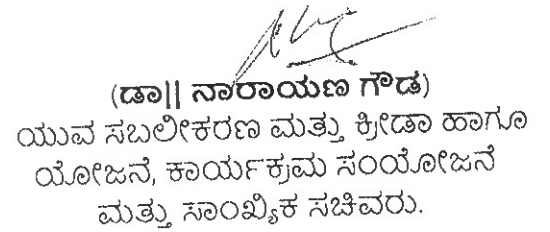 (ಡಾ|| ನಾರಾಯಣ ಗೌಡ)
ಯುವ ಸಬಲೀಕರಣ ಮತ್ತು ಕ್ರೀಡಾ ಹಾಗೂ
ಯೋಜನೆ, ಕಾರ್ಯಕ್ರಮ ಸಂಯೋಜನೆ
ಮತ್ತು ಸಾಂಖ್ಯಿಕ ಸಚಿವರು.